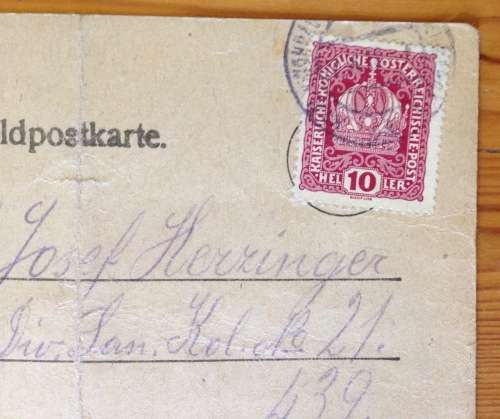 KAISERLICHE·KÖNIGLICHE·ÖSTERREICHISCHE·POST
HELLER.
10
ldpostkarte.
Josef Herzinger
Div. San. Kol. No 21.
439